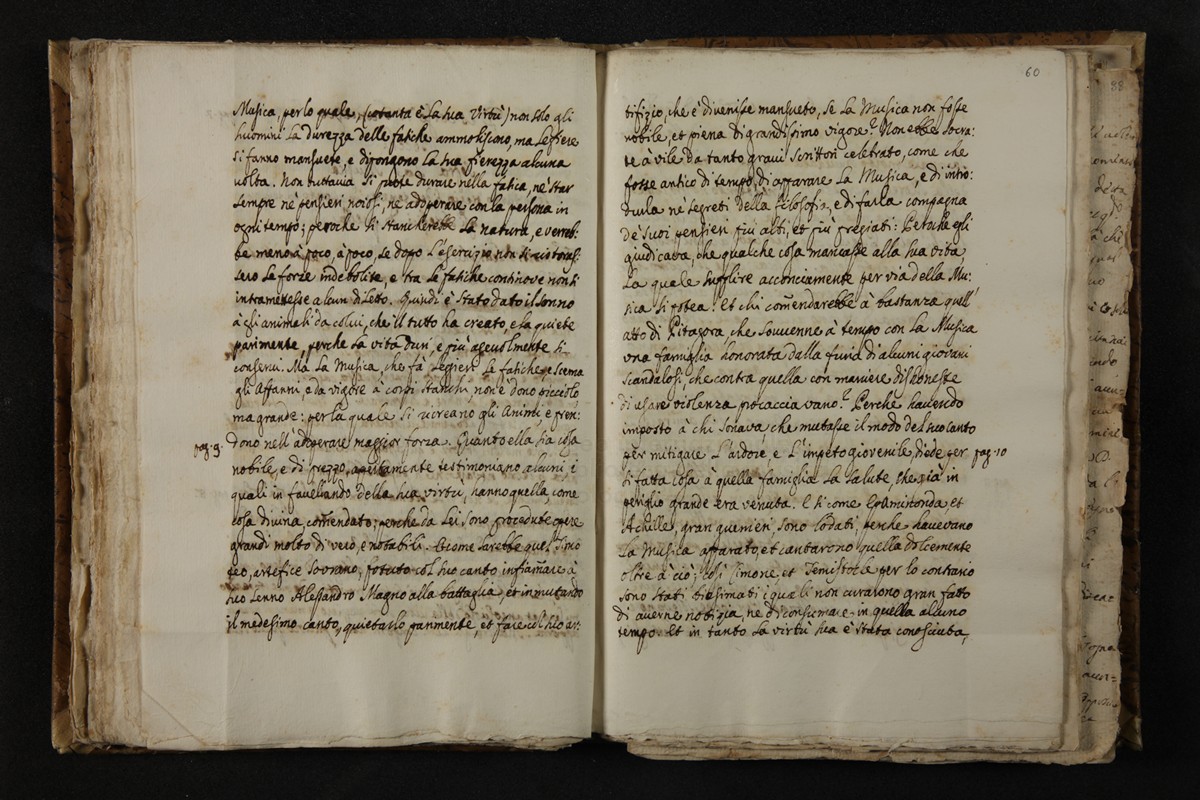 Musica, per lo quale, (cotanta è la sua Virtù) non solo gli
huomini la durezza delle fatiche ammolliscono, ma le fiere
si fanno mansuete, e dipongono la sua fierezza alcuna
volta. Non tuttavia si puote durare nella fatica, nè star
sempre nè pensieri noiosi, nè adoperare con la persona in
ogni tempo; peroche si stancherebbe la natura, e verreb:
be meno à poco, à poco, se dopo l'esercizio non si ristoras:
sero le forze indebolite, e tra le fatiche continove non s'
intramettesse alcun diletto. Quindi è stato dato il sonno
à gli animali da colui, che il tutto ha creato, e la quiete
parimente, perche la vita duri, e più agevolmente si
conservi. Ma la Musica, che fà leggieri le fatiche, e scema
gli Affanni, e da vigore à corpi stanchi, non è dono picciolo,
ma grande: per la quale si ricreano gli Animi, e pren:
dono nell'adoperare maggior forza. Quanto ella sia cosa
pag 9.
nobile, e di prezzo, apertamente testimoniano alcuni, i
quali in favellando della sua virtù, hanno quella, come
cosa divina, com̃endato; perche da lei sono procedute opere
grandi molto di vero, e notabili. E come sarebbe quel Timo
teo, artefice sovrano, potuto col suo canto infiam̃are à
suo senno Alessandro Magno alla battaglia, et inmutando
il medesimo canto, quietarlo parimente, et fare col suo ar:
60
tifizio, che è divenisse mansueto, se la Musica non fosse
nobile, et piena di grandissimo vigore? Non ebbe Socra:
te à vile da tanto gravi scrittori celebrato, come che
fosse antico di tempo, di apparare la Musica, e di intro:
durla nè segreti della Filosofia, e di farla compagna
de suoi pensieri più alti, et più pregiati: Peroche egli
giudicava, che qualche cosa mancasse alla sua vita,
la quale supplire acconciamente per via della Mu:
sica si potea. Et chi com̃endarebbe à bastanza quell'
atto di Pitagora, che souvenne à tempo con la Musica
una famiglia honorata dalla furia di alcuni giovani
scandalosi, che contra quella con maniere dishoneste
di usare violenza procacciavano? Perche havendo
imposto à chi sonava, che mutasse il modo del suo canto
per mitigare l'ardore, e l'impeto giovenile, diede per
pag. 10
sì fatta cosa à quella famiglia la salute, che già in
periglio grande era venuta. E si come Epaminonda, et
Achille, gran guerrieri, sono lodati, perche havevano
la Musica apparato, et cantarono quella dolcemente
oltre à ciò; così Cimone, et Temistocle per lo contrario
sono stati biasimati i quali non curarono gran fatto
di averne notizia, ne di consumare in quella alcuno
tempo. Et in tanto la virtù sua è stata conosciuta,
88